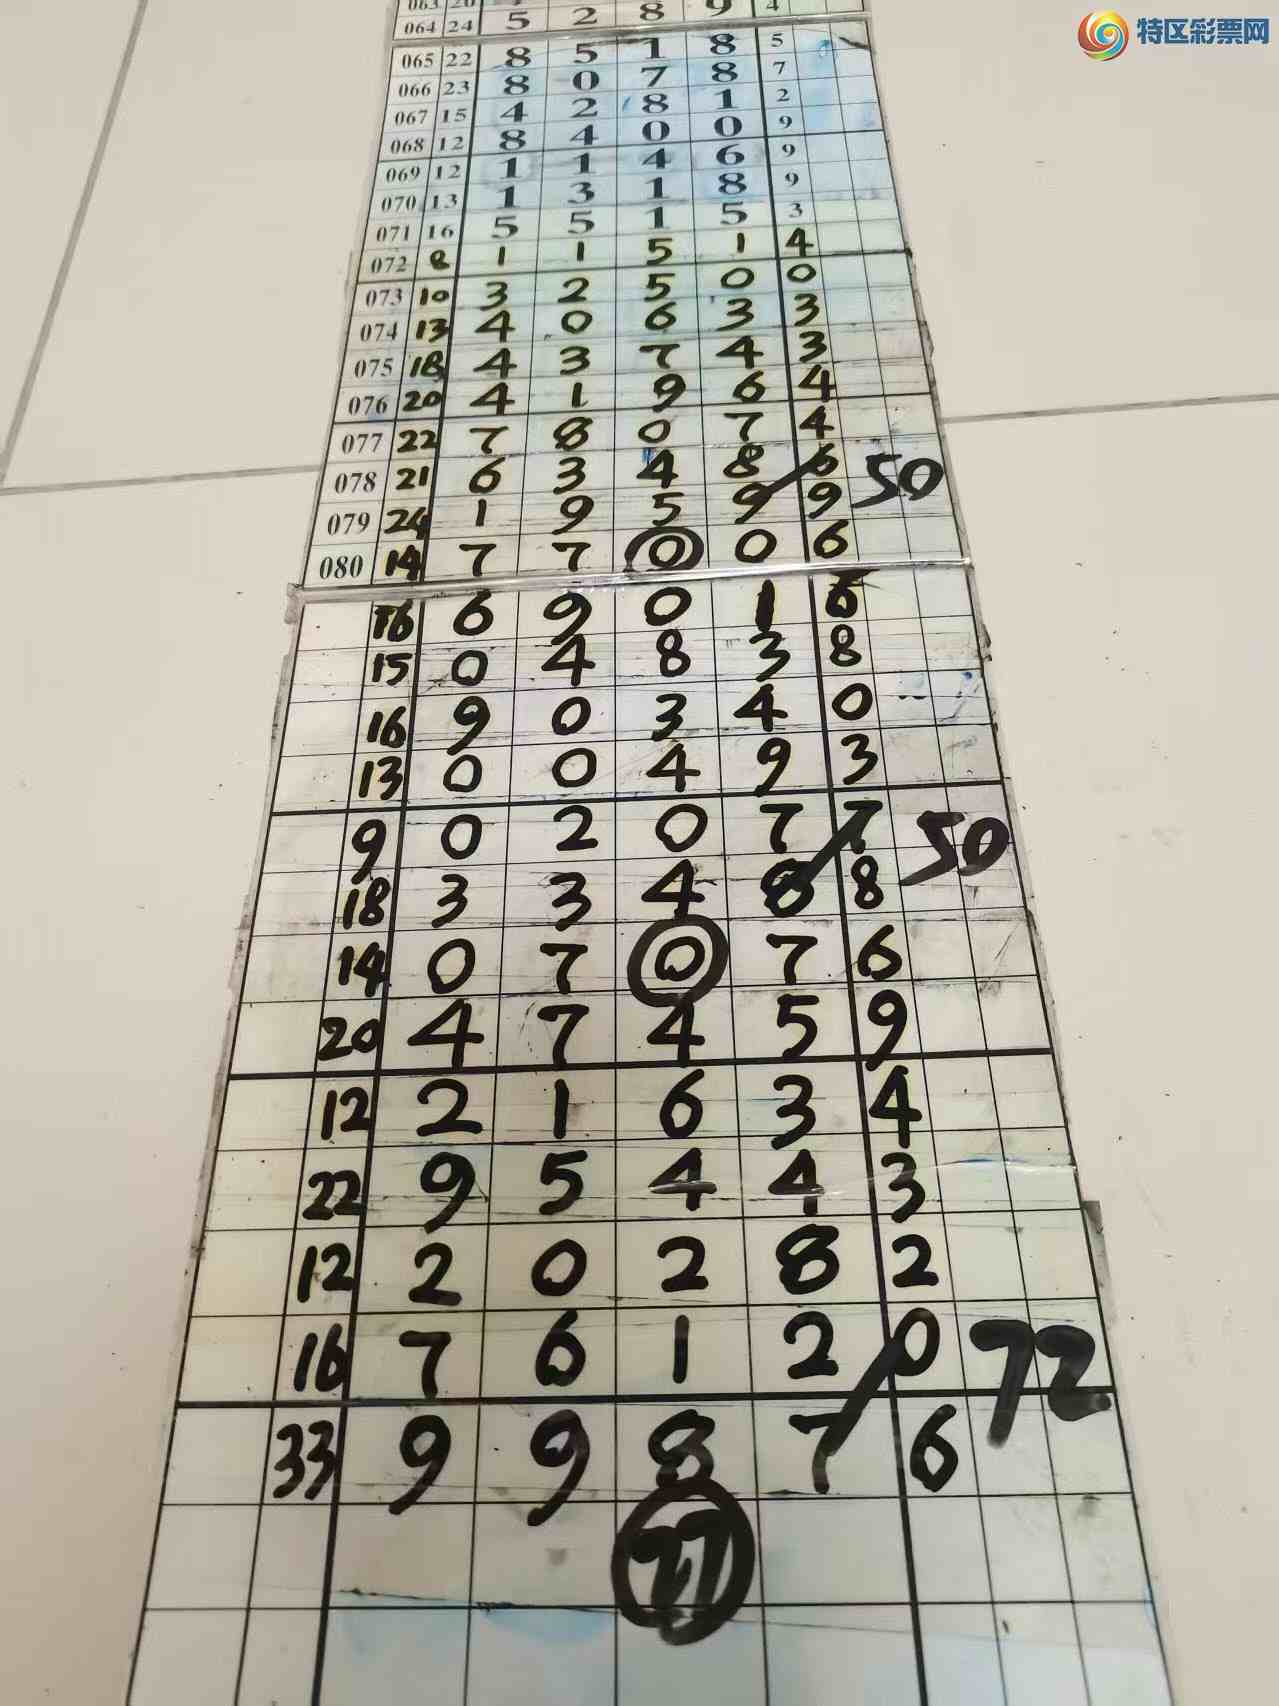 特区彩票网
063 20
064 24 5 2 8 9 4
065 22 8 5 1 8 5
066 23 8 0 7 8 7
067 15 4 2 8 1 2
068 12 8 4 0 0 9
069 12 1 1 4 6 9
070 13 1 3 1 8 9
071 16 5 5 1 5 3
072 8 1 1 5 1 4
073 10 3 2 5 0 0
074 13 4 0 6 3 3
075 18 4 3 7 4 3
076 20 4 1 9 6 4
077 22 7 8 0 7 4
078 21 6 3 4 8 6 50
079 24 1 9 5 9 9
080 14 7 7 0 0 6
16 6 9 0 1 6
15 0 4 8 3 8
16 9 0 3 4 0
13 0 0 4 9 3
9 0 2 0 7 7 50
18 3 3 4 8 8
14 0 7 0 7 6
20 4 7 4 5 9
12 2 1 6 3 4
22 9 5 4 4 3
12 2 0 2 8 2
16 7 6 1 2 0 72
33 9 9 8 7 6
77